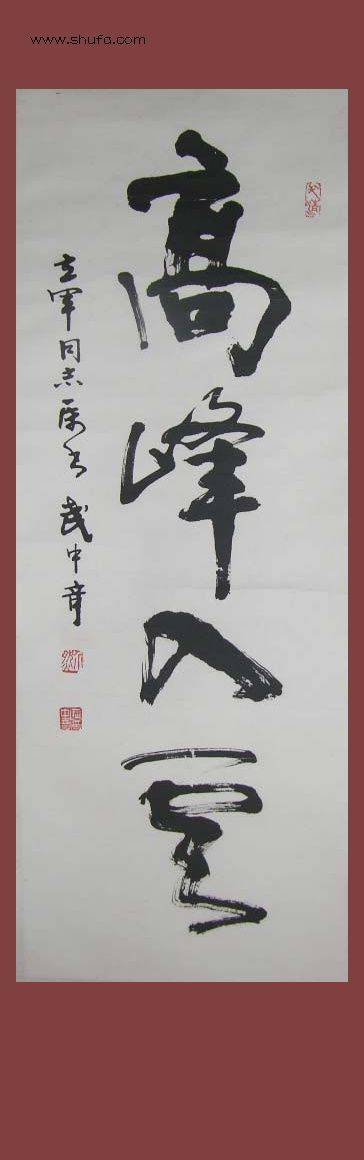 www.shufa.com
高峰入雲
立军同志属书 武中奇